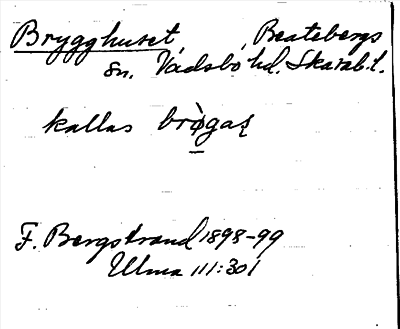 Brygghuset, Beatebergs
sn. Vadsbo hd. Skarab.l.
kallas
F. Bergstrand 1898-99
Ulma 111:301